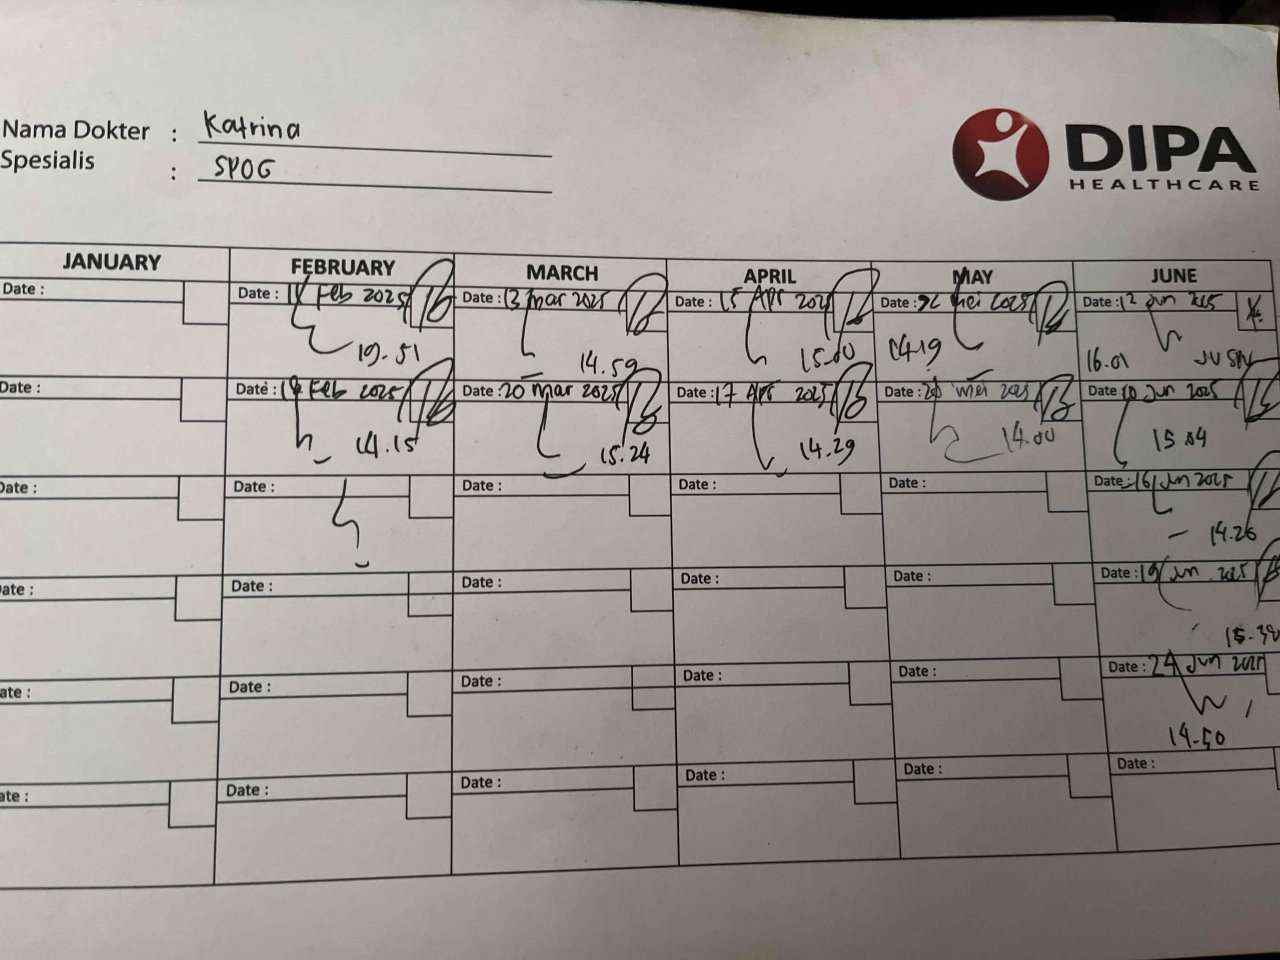 Nama Dokter : Katrina
Spesialis : SPOG
DIPA
HEALTHCARE
JANUARY FEBRUARY MARCH APRIL MAY JUNE
Date : Date : Feb 2025 Date : 13 mar 2025 Date : 15 Apr 2025 Date : mei 2025 Date : 12 Jun 2025
19.51 14.59 15.00 14.19 16.01
Date : Date : Feb 2025 Date : 20 mar 2025 Date : 17 Apr 2025 Date : mei 2025 Date Jun 2025
14.15 15.24 14.29 14.00 15 04
Date : Date : Date : Date : Date : Date : 16 Jun 2025
14.26
Date : Date : Date : Date : Date : Date : 19 Jun 2025
15.38
ate : Date : Date : Date : Date : Date : 24 Jun 2025
14.50
ate : Date : Date : Date : Date : Date :